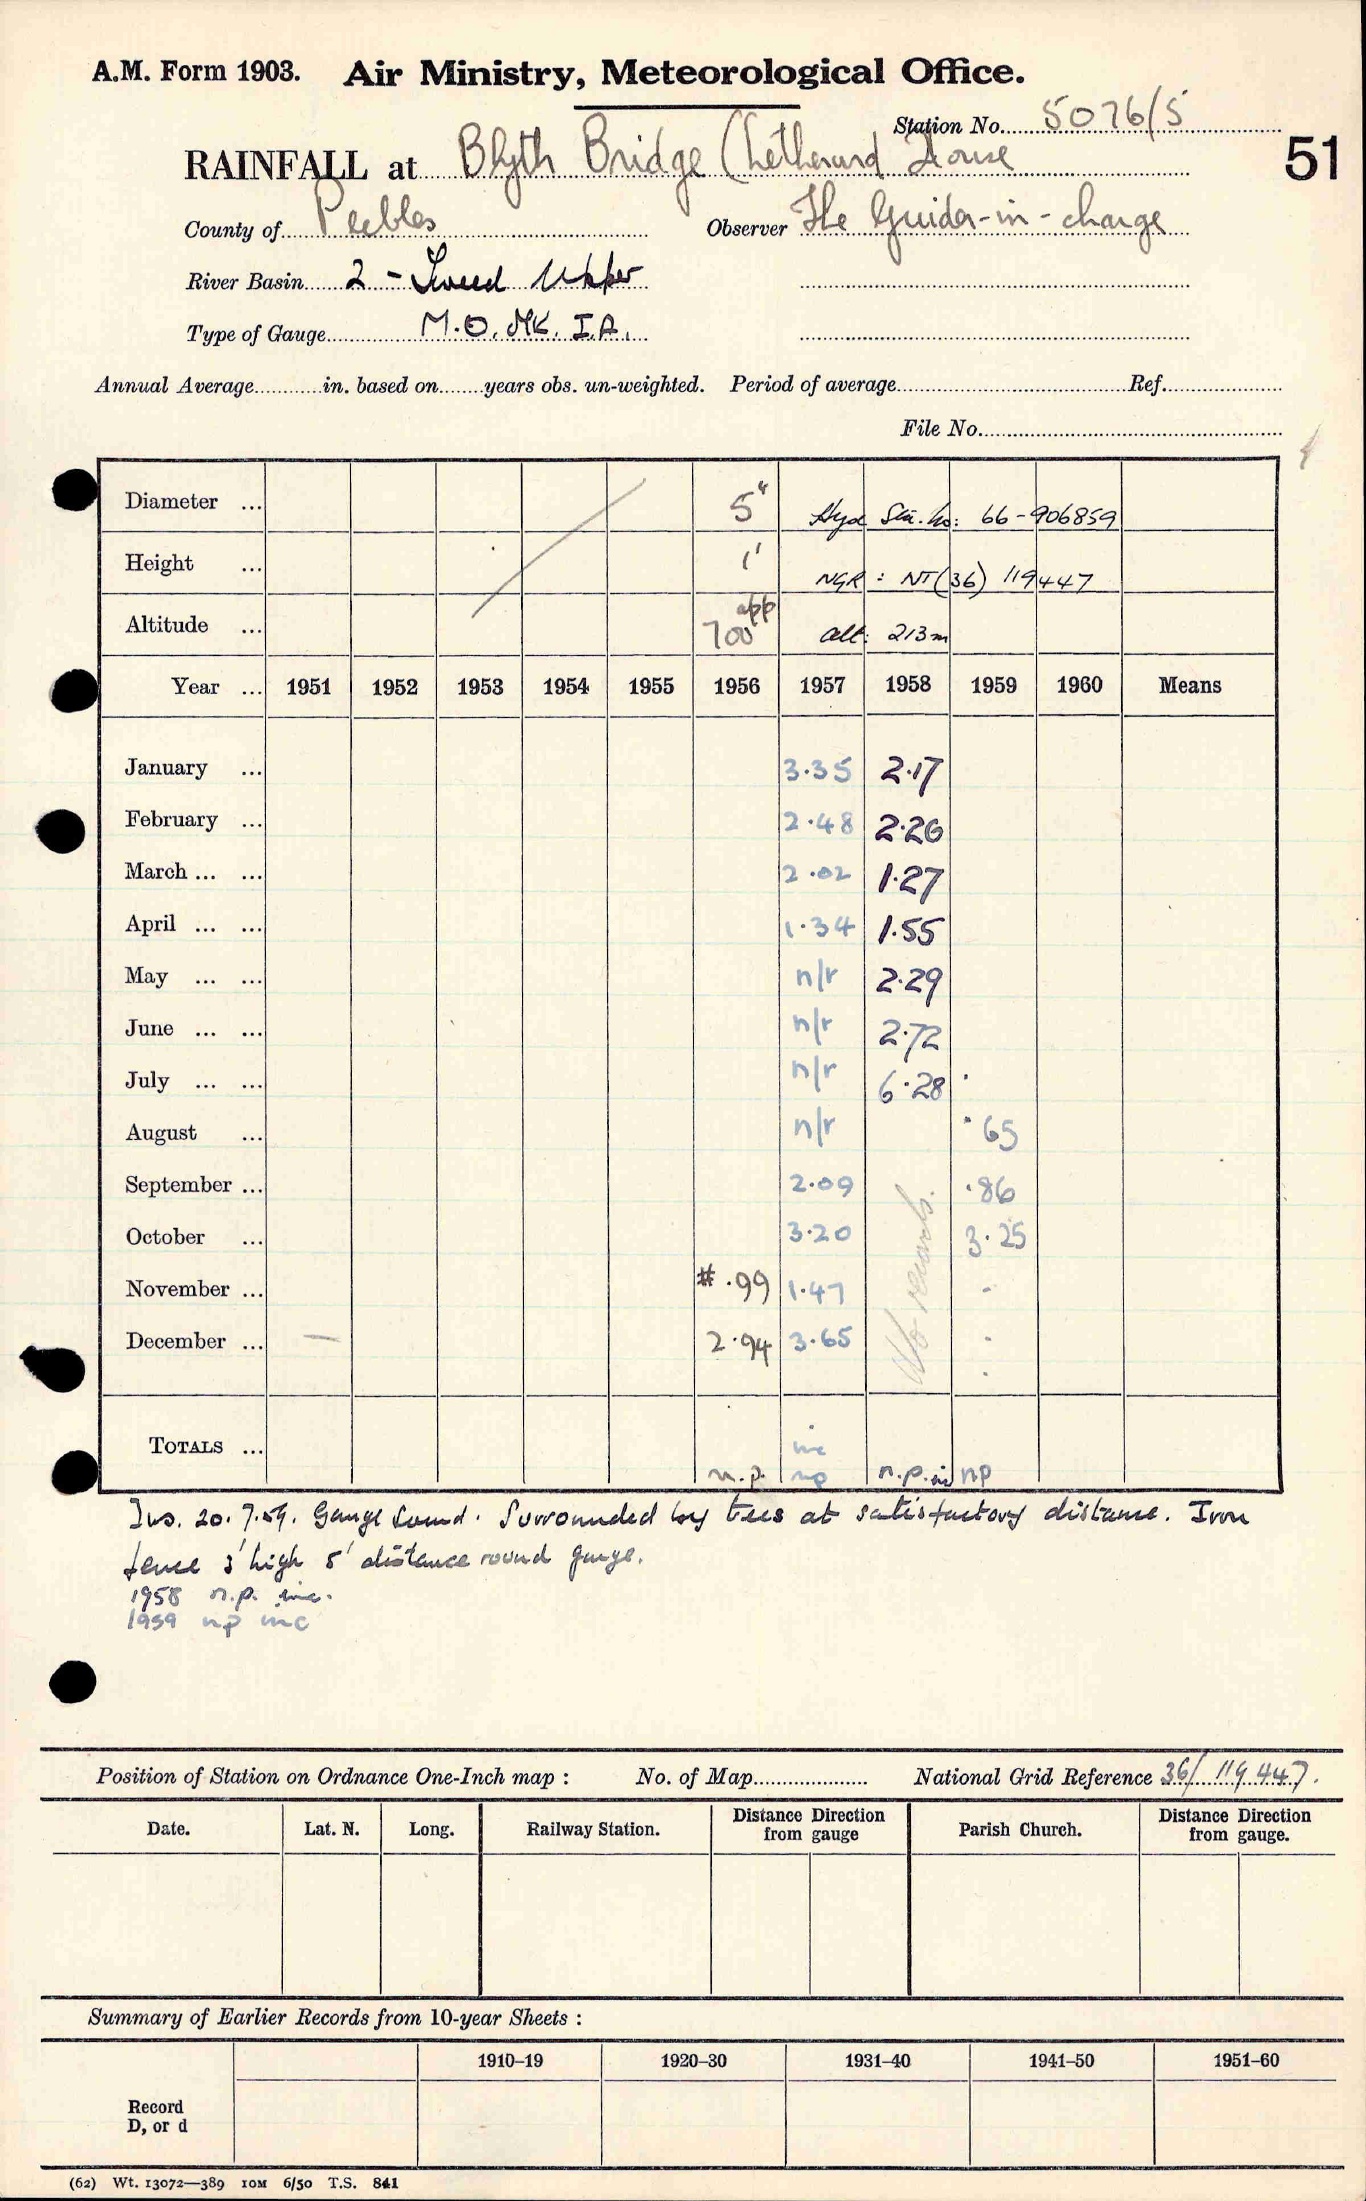 A.M. Form 1903. Air Ministry, Meteorological Office.
Station No. 5076/5
51
RAINFALL at Blyth Bridge (Netherurd House
County of Peebles Observer The Guider-in-charge
River Basin 2 - Tweed Upper
Type of Gauge M.O. MK. IA.
Annual Average in. based on years obs. un-weighted. Period of average Ref.
File No.
Diameter ... 5" Hyd Sta. No: 66-906859
Height ... 1' NGR : NT(36) 119447
Altitude ... 700 app alt: 213m
Year ... 1951 1952 1953 1954 1955 1956 1957 1958 1959 1960 Means
January ... 3.35 2.17
February ... 2.48 2.26
March ... ... 2.02 1.27
April ... ... 1.34 1.55
May ... ... n/r 2.29
June ... ... n/r 2.72
July ... ... n/r 6.28
August ... n/r .65
September ... 2.09 .86
October ... 3.20 3.25
November ... # .99 1.47 -
December ... 2.94 3.65 -
No records.
TOTALS ... inc
n.p. np n.p. in np
Ins. 20.7.59. Gauge sound. Surrounded by trees at satisfactory distance. Iron
fence 3' high 5' distance round gauge.
1958 n.p. inc.
1959 np inc
Position of Station on Ordnance One-Inch map : No. of Map National Grid Reference 36/ 119 447.
Date. Lat. N. Long. Railway Station. Distance Direction from gauge Parish Church. Distance Direction from gauge.
Summary of Earlier Records from 10-year Sheets :
1910-19 1920-30 1931-40 1941-50 1951-60
Record
D, or d
(62) Wt. 13072—389 10M 6/50 T.S. 841